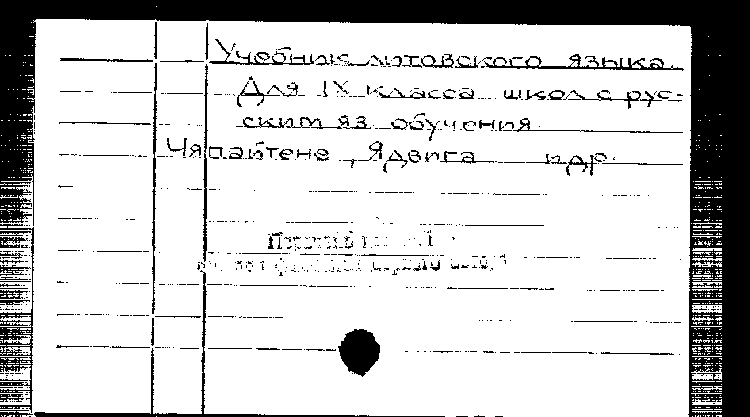 Учебник литовского языка.
Для IX класса школ с рус-
ским яз. обучения.
Чяпайтене, Ядвига и др.